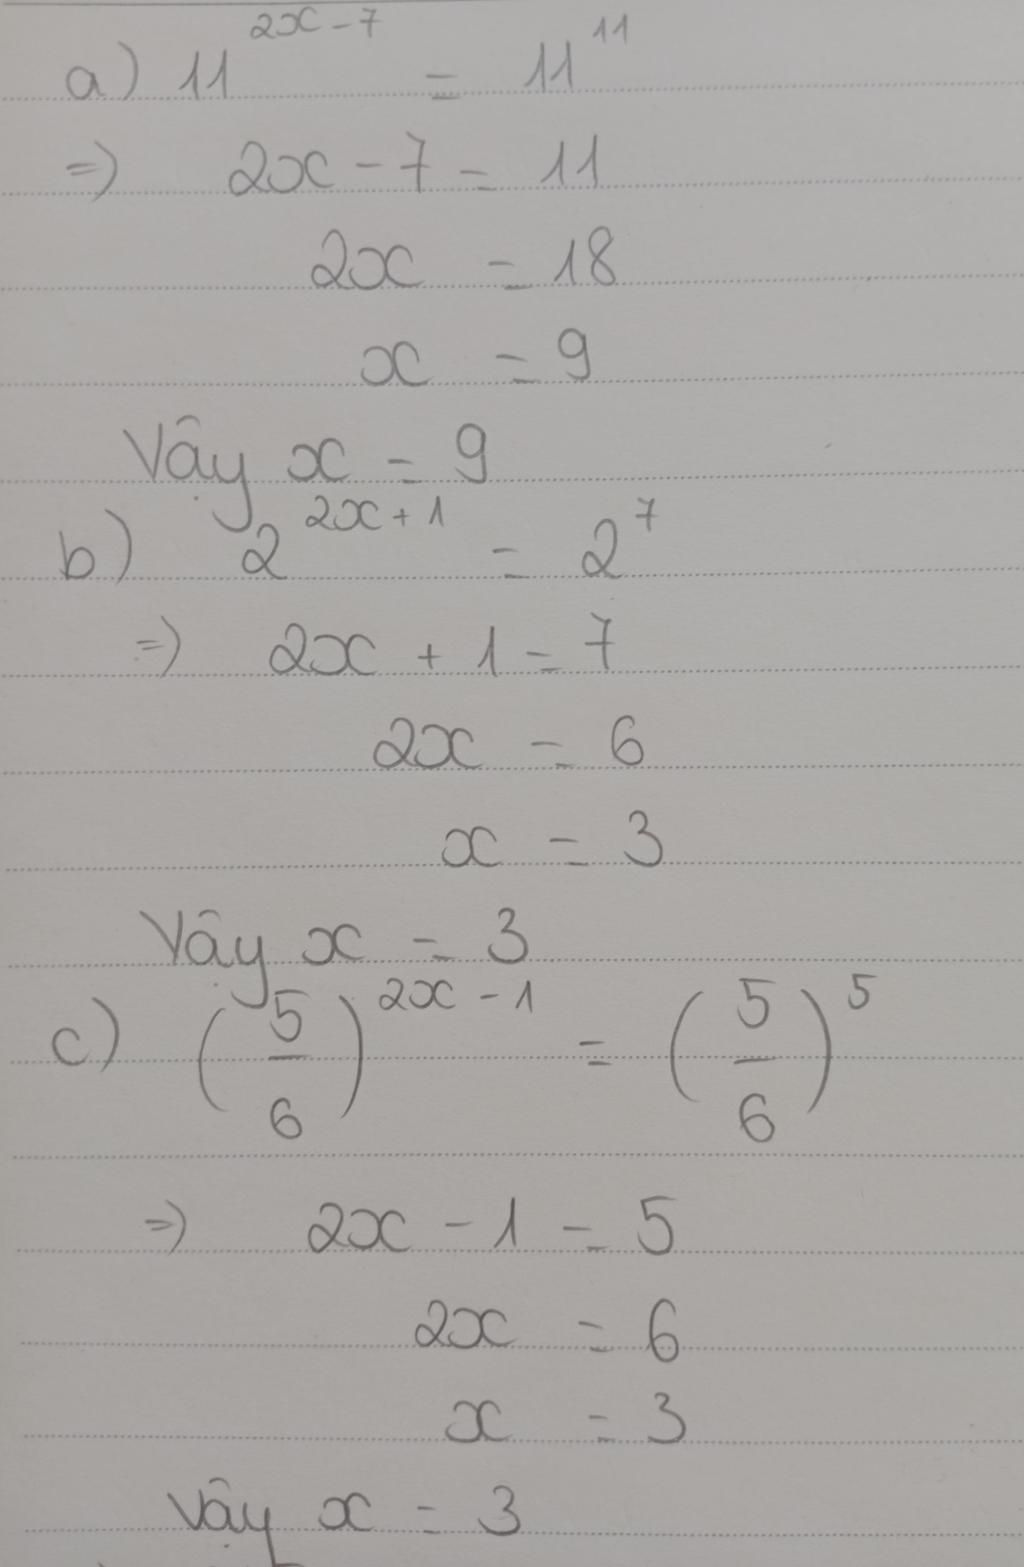 a) 11^{2x-7} = 11^{11}
=> 2x - 7 = 11
2x = 18
x = 9
Vậy x = 9
b) 2^{2x+1} = 2^7
=> 2x + 1 = 7
2x = 6
x = 3
Vậy x = 3
c) (5/6)^{2x-1} = (5/6)^5
=> 2x - 1 = 5
2x = 6
x = 3
Vậy x = 3